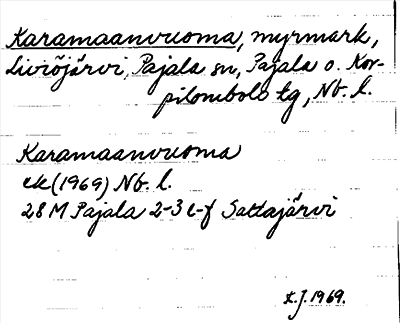 Karamaanvuoma, myrmark,
Liviöjärvi, Pajala sn, Pajala o. Kor-
pilombolo tg, Nb. l.
Karamaanvuoma
ek (1969) Nb. l.
28 M Pajala 2-3 e-f Sattajärvi
1969.